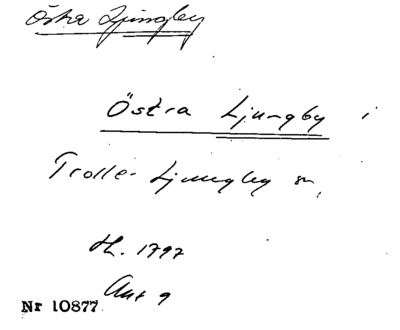 Östra Ljungby
Östra Ljungby i
Trolle-Ljungby sn,
th. 1797
Akt 9
Nr 10877